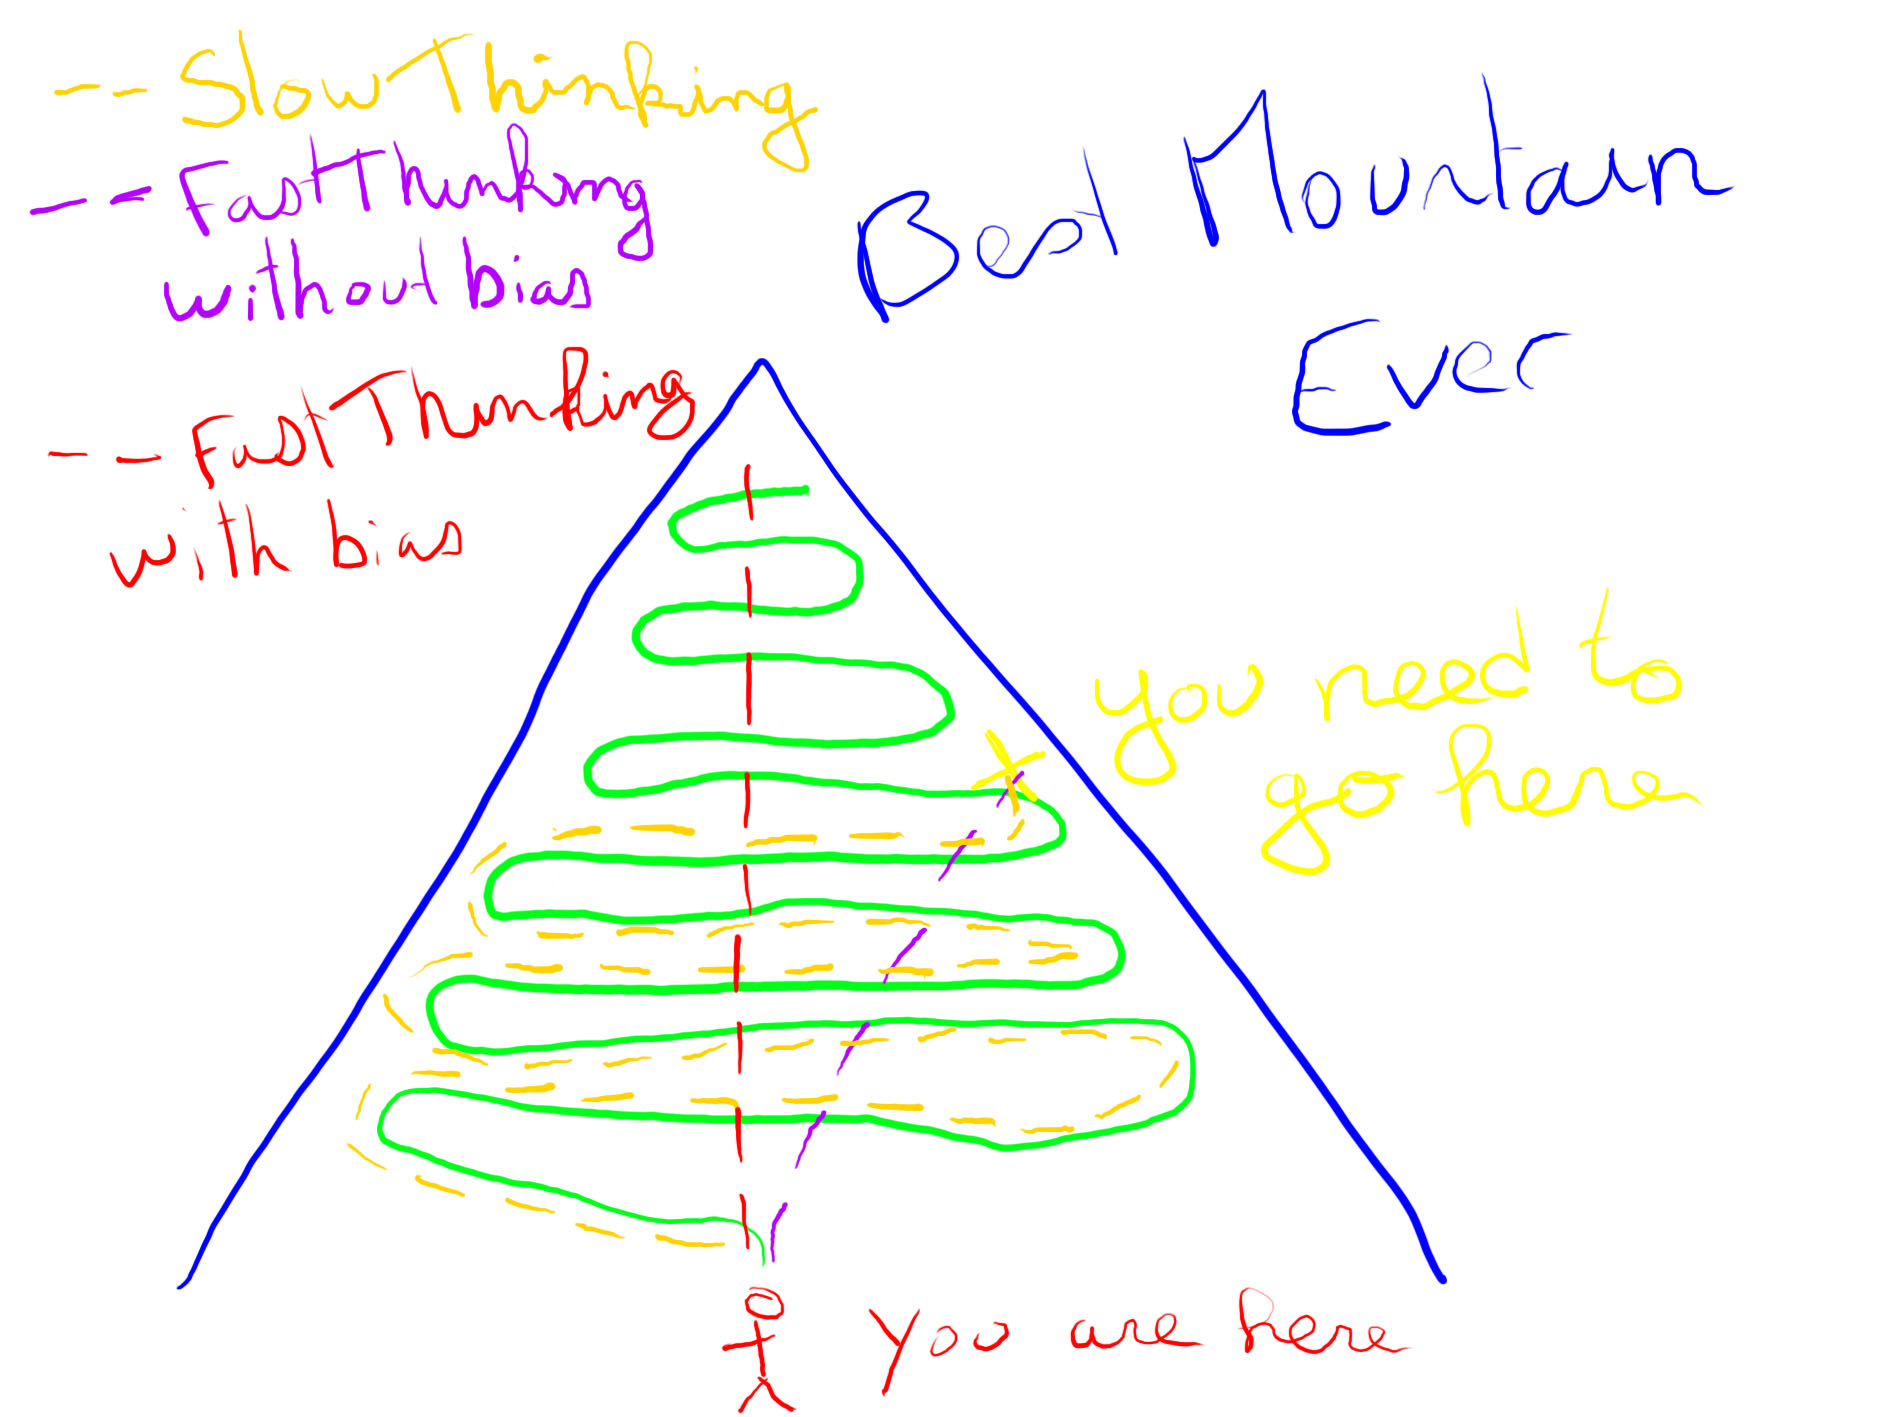 -- Slow Thinking
-- Fast Thinking
without bias
-- Fast Thinking
with bias
Best Mountain
Ever
you need to
go here
You are here